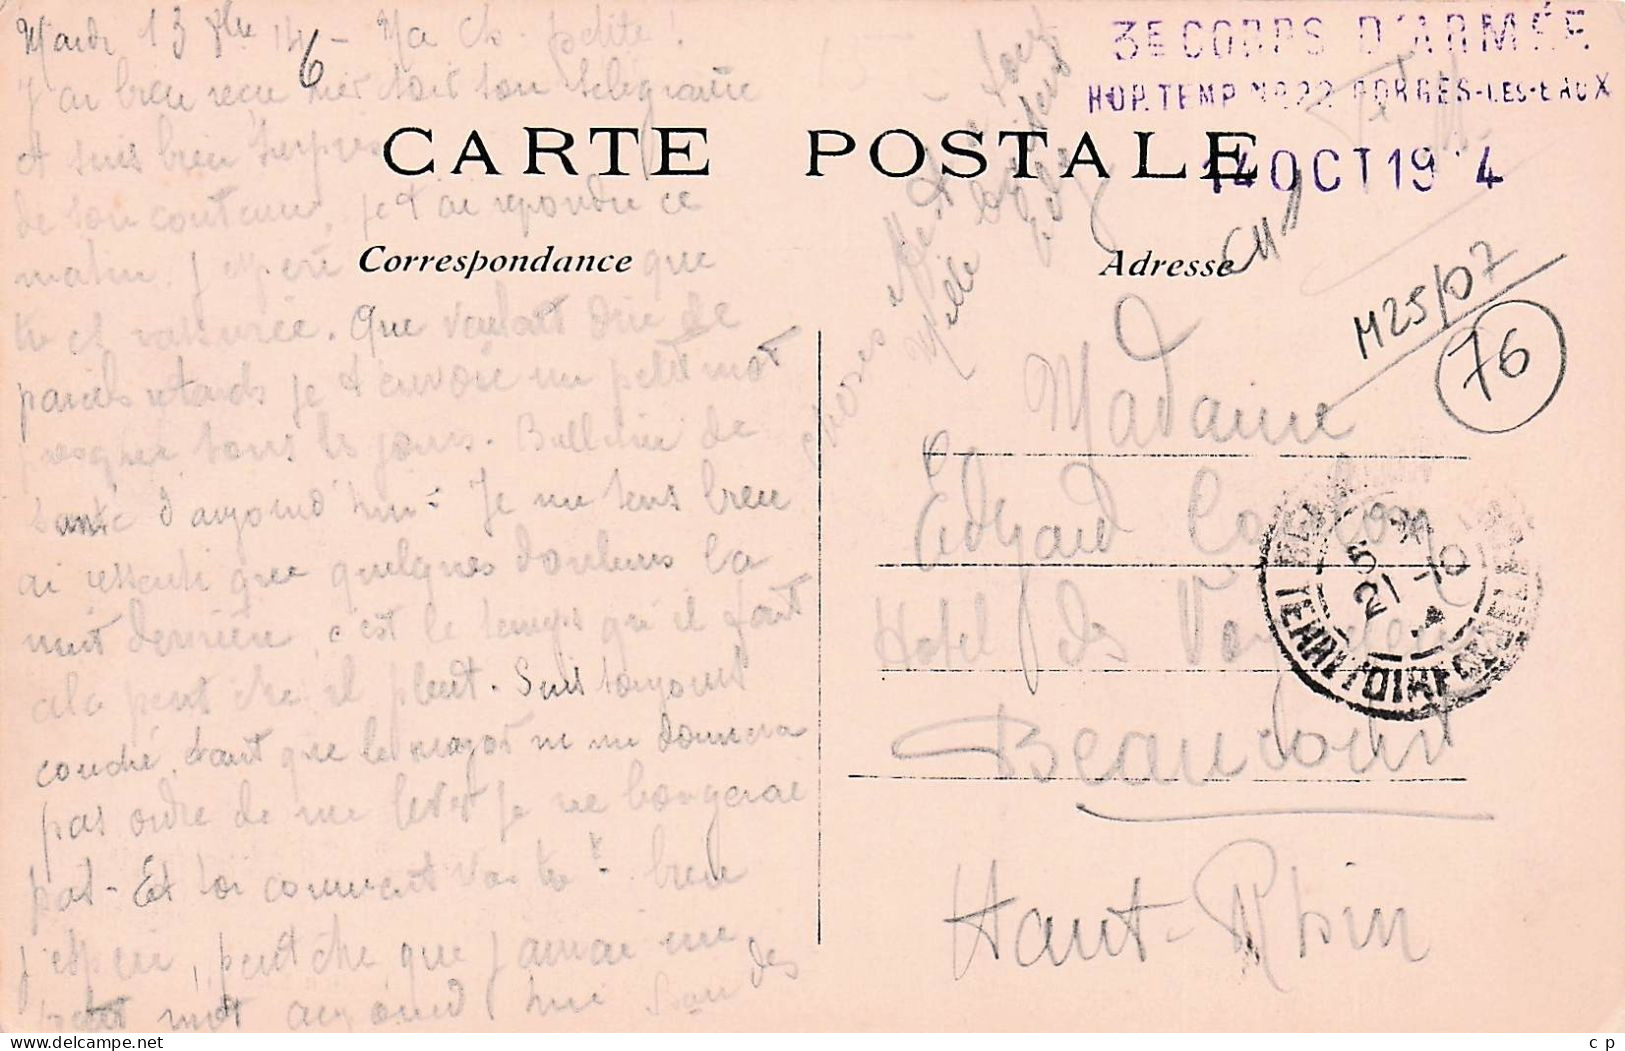 Mardi 13 8bre 14 - Ma Ch. petite.
J'ai bien reçu hier soir ton télégramme
et suis bien surpris
de son contenu, je t'ai répondu ce
matin. J'espère que
tu es rassurée. Que veulent dire de
pareils retards je t'envoie un petit mot
presque tous les jours. Bulletin de
santé d'aujourd'hui : Je me sens bien
ai ressenti que quelques douleurs la
nuit dernière, c'est le temps qui fait
cela peut être il pleut. Suis toujours
couché, tant que le major ne me donnera
pas ordre de me lever je ne bougerai
pas - Et toi comment vas tu ? bien
j'espère, peut être que j'aurai un
petit mot aujourd'hui
CARTE POSTALE
Correspondance
Adresse
3E CORPS D'ARMÉE
HOP. TEMP. Nº22 FORGES-LES-EAUX
14 OCT 19 4
M25/07
76
Madame
Edgard
Hotel des
Beaucourt
Haut-Rhin
21-10